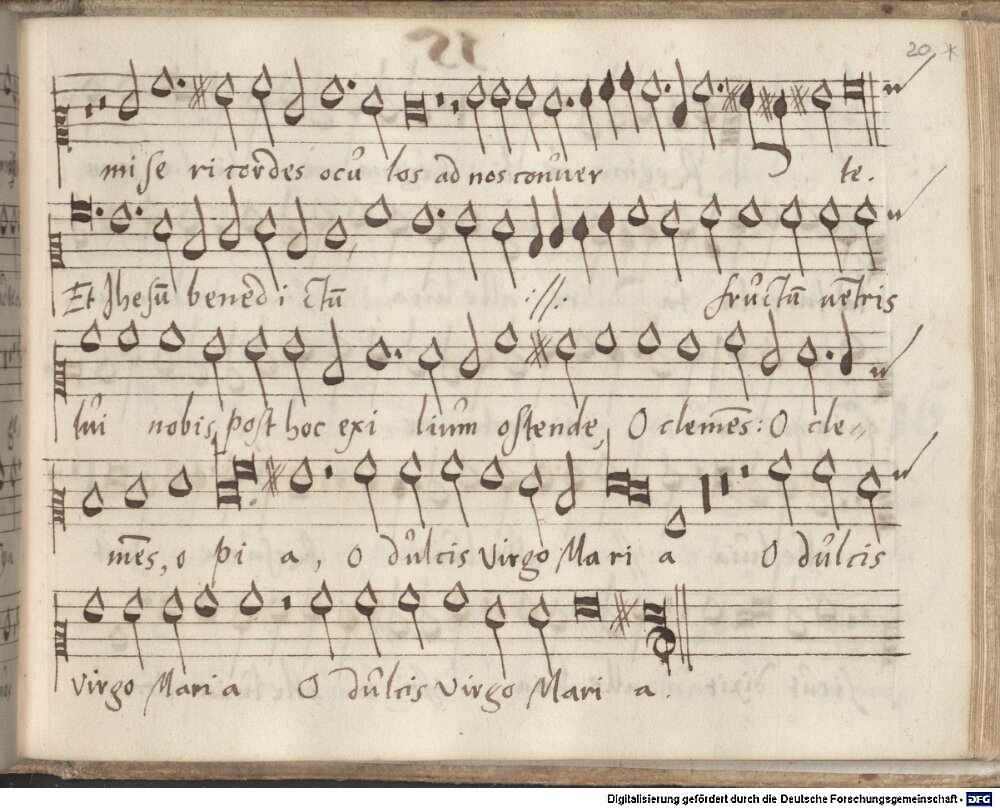 20 *
mi se ricordes ocū los ad nos cōnver te.
Et Jhesū bened i ctū :||: frūctūm vētris
tui nobis, post hoc exi liūm ostende, O clemēs: O cle=
mēs, o pi a, O dūlcis Virgo Mari a O dūlcis
virgo Maria O dūlcis Virgo Mari a.
Digitalisierung gefördert durch die Deutsche Forschungsgemeinschaft - DFG